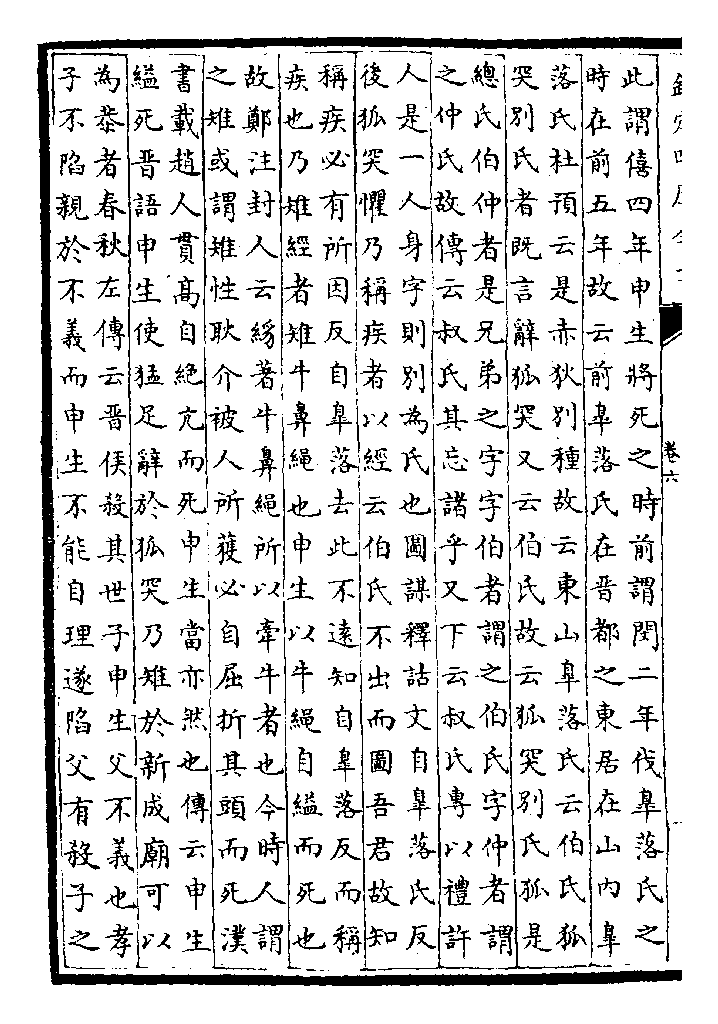 卷六
此謂僖四年申生將死之時前謂閔二年伐臯落氏之
時在前五年故云前臯落氏在晉都之東居在山內臯
落氏杜預云是赤狄別種故云東山臯落氏云伯氏狐
突別氏者既言辭狐突又云伯氏故云狐突別氏狐是
總氏伯仲者是兄弟之字字伯者謂之伯氏字仲者謂
之仲氏故傳云叔氏其忘諸乎又下云叔氏專以禮許
人是一人身字則別為氏也圖謀釋詁文自臯落氏反
後狐突懼乃稱疾者以經云伯氏不出而圖吾君故知
稱疾必有所因反自臯落去此不遠知自臯落反而稱
疾也乃雉經者雉牛鼻繩也申生以牛繩自縊而死也
故鄭注封人云絼著牛鼻繩所以牽牛者也今時人謂
之雉或謂雉性耿介被人所獲必自屈折其頭而死漢
書載趙人貫高自絕亢而死申生當亦然也傳云申生
縊死晉語申生使猛足辭於狐突乃雉於新成廟可以
為恭者春秋左傳云晉侯殺其世子申生父不義也孝
子不陷親於不義而申生不能自理遂陷父有殺子之